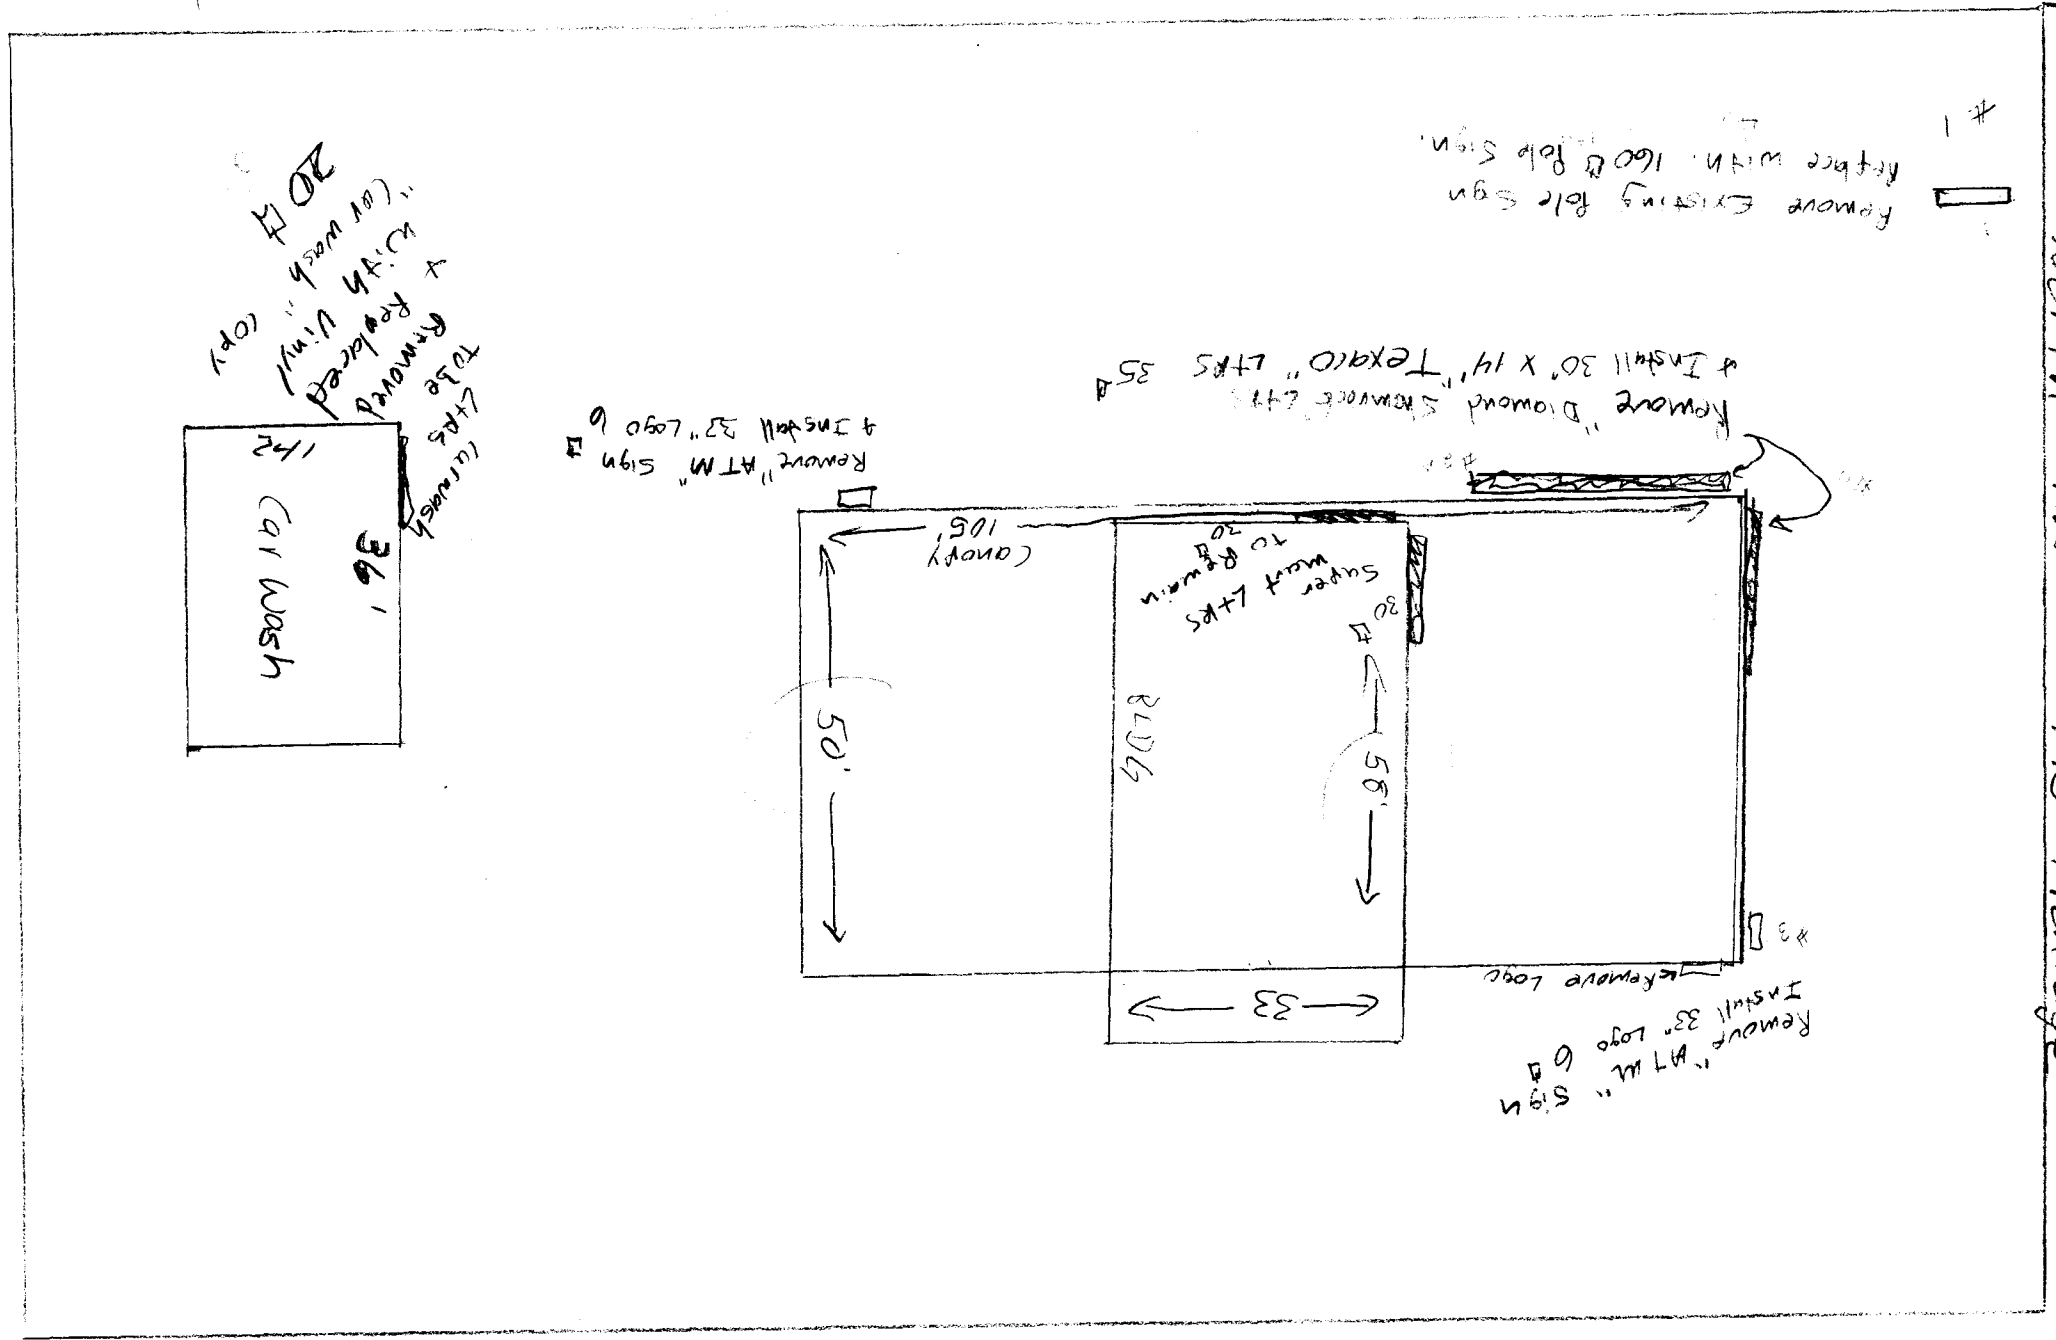 Remove Existing Pole Sign
Replace with 160 Pole Sign.
#1
Remove "Diamond Shamrock" Ltrs
+ Install 30" x 14' "Texaco" LtRS 35
#2
Remove "ATM" Sign
+ Install 33" Logo 6
Canopy
105'
Super
mart LtRS
to Remain
30
30
50'
58'
BLDG
33
#3
Remove Logo
Remove "ATM" Sign
Install 33" Logo 6
Car Wash
36'
24'
Carwash
LtRS
To Be
Removed
+ Replaced
with Vinyl
"Car wash" copy
20